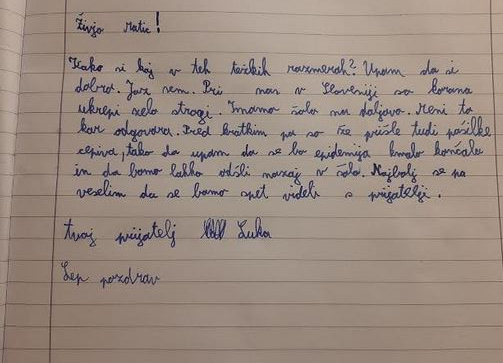 Živjo Matic!
Kako si kaj v teh težkih razmerah? Upam da si
dobro. Jaz sem. Pri nas v Sloveniji so korona
ukrepi zelo strogi. Imamo šolo na daljavo. Meni to
kar odgovora. Pred kratkim pa so že prišle tudi pošiljke
cepiva, tako da upam da se bo epidemija kmalo končala
in da bomo lahko odšli nazaj v šolo. Najbolj se pa
veselim da se bomo spet videli s prijatelji.
tvoj prijatelj Luka
Lep pozdrav